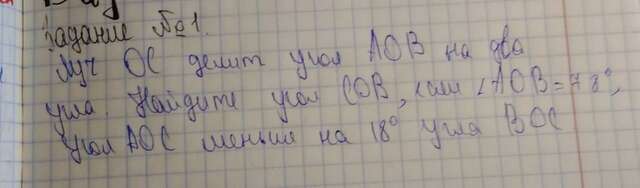 Задание №1.
Луч OC делит угол AOB на два
угла. Найдите угол COB, если ∠AOB=78°,
угол AOC меньше на 18° угла BOC